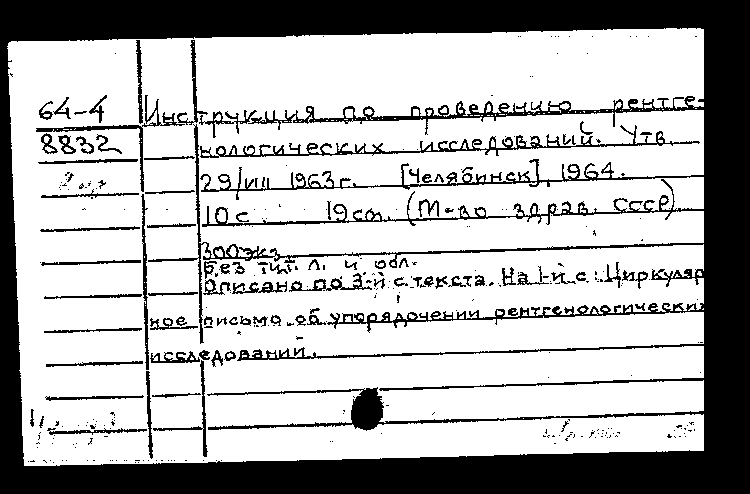 64-4 Инструкция по проведению рентге-
8832 нологических исследований. Утв.
29/VIII 1963г. [Челябинск], 1964.
10 с. 19 см. (М-во здрав. СССР)
300 экз.
Без тит. л. и обл.
Описано по 3-й с текста. На 1-й с: Циркуляр
ное письмо об упорядочении рентгенологических
исследований.